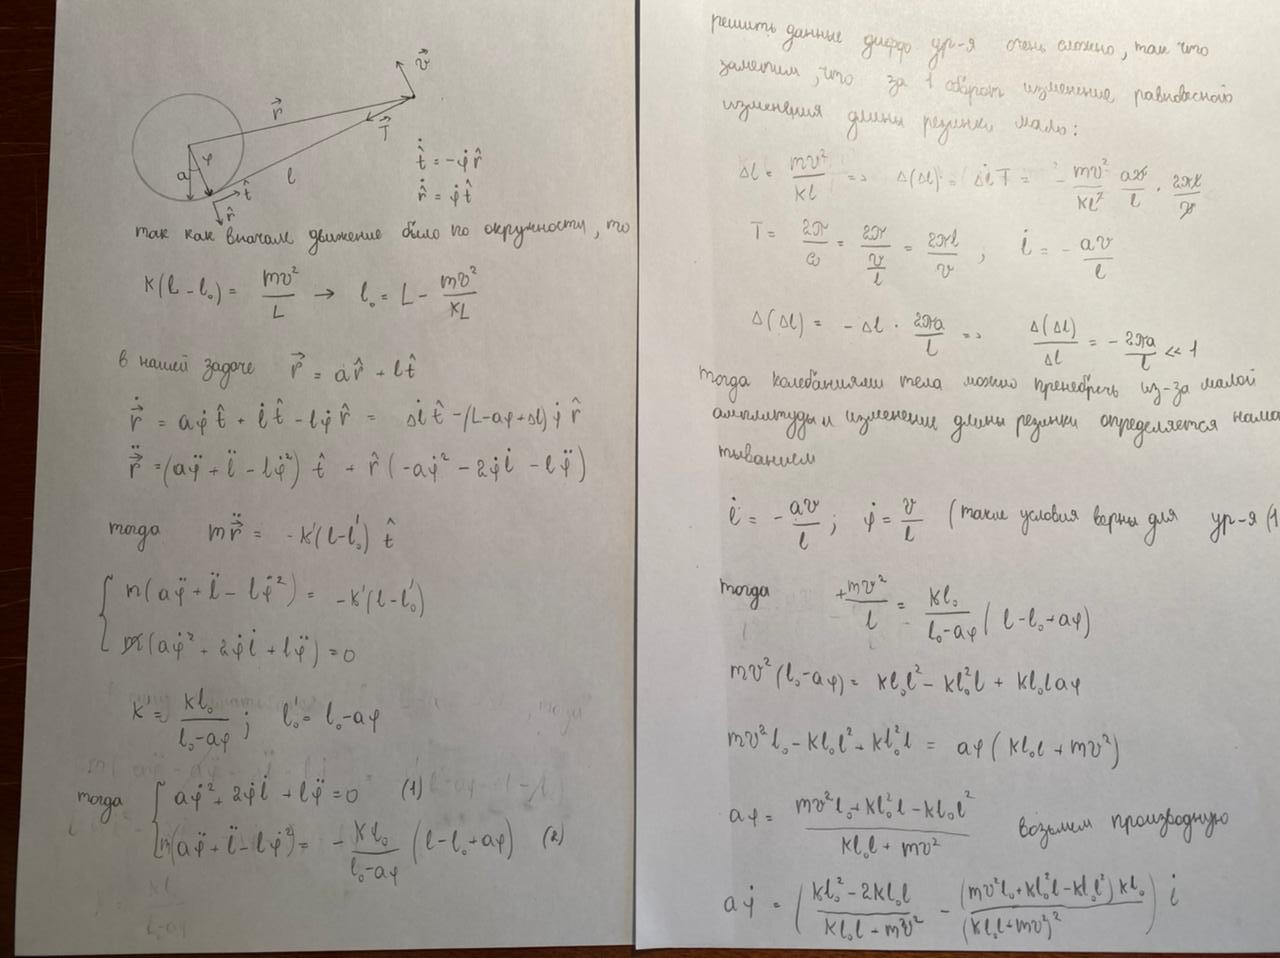 a φ r⃗ l T⃗ v⃗ t̂ r̂
ṫ̂ = -φ̇ r̂
ṙ̂ = φ̇ t̂
так как вначале движение было по окружности, то
K(L - l₀) = mv²/L → l₀ = L - mv²/KL
в нашей задаче r⃗ = a r̂ + l t̂
ṙ⃗ = aφ̇ t̂ + l̇ t̂ - lφ̇ r̂ = Δl̇ t̂ - (L - aφ + Δl) φ̇ r̂
r̈⃗ = (aφ̈ + l̈ - lφ̇²) t̂ + r̂ (-aφ̇² - 2φ̇l̇ - lφ̈)
тогда m r̈⃗ = -k'(l - l₀') t̂
{ m(aφ̈ + l̈ - lφ̇²) = -k'(l - l₀')
m(aφ̇² + 2φ̇l̇ + lφ̈) = 0
k' = kl₀/(l₀ - aφ) ; l₀' = l₀ - aφ
тогда { aφ̇² + 2φ̇l̇ + lφ̈ = 0 (1)
m(aφ̈ + l̈ - lφ̇²) = - kl₀/(l₀ - aφ) (l - l₀ + aφ) (2)
решить данные диффо ур-я очень сложно, так что
заметим, что за 1 оборот изменение равновесного
изменения длины резинки мало:
Δl = mv²/kl => Δ(Δl) = Δl̇ T = - mv²/kl² · av/l · 2πl/v
T = 2π/ω = 2π/(v/l) = 2πl/v ; l̇ = - av/l
Δ(Δl) = - Δl · 2πa/l => Δ(Δl)/Δl = - 2πa/l << 1
тогда колебаниями тела можно пренебречь из-за малой
амплитуды и изменение длины резинки определяется нама
тыванием
l̇ = - av/l ; φ̇ = v/l (такие условия верны для ур-я (1
тогда + mv²/l = kl₀/(l₀ - aφ) (l - l₀ + aφ)
mv²(l₀ - aφ) = kl₀l² - kl₀²l + kl₀laφ
mv²l₀ - kl₀l² + kl₀²l = aφ(kl₀l + mv²)
aφ = (mv²l₀ + kl₀²l - kl₀l²)/(kl₀l + mv²) возьмем производную
aφ̇ = ( (kl₀² - 2kl₀l)/(kl₀l + mv²) - (mv²l₀ + kl₀²l - kl₀l²)kl₀/(kl₀l + mv²)² ) l̇